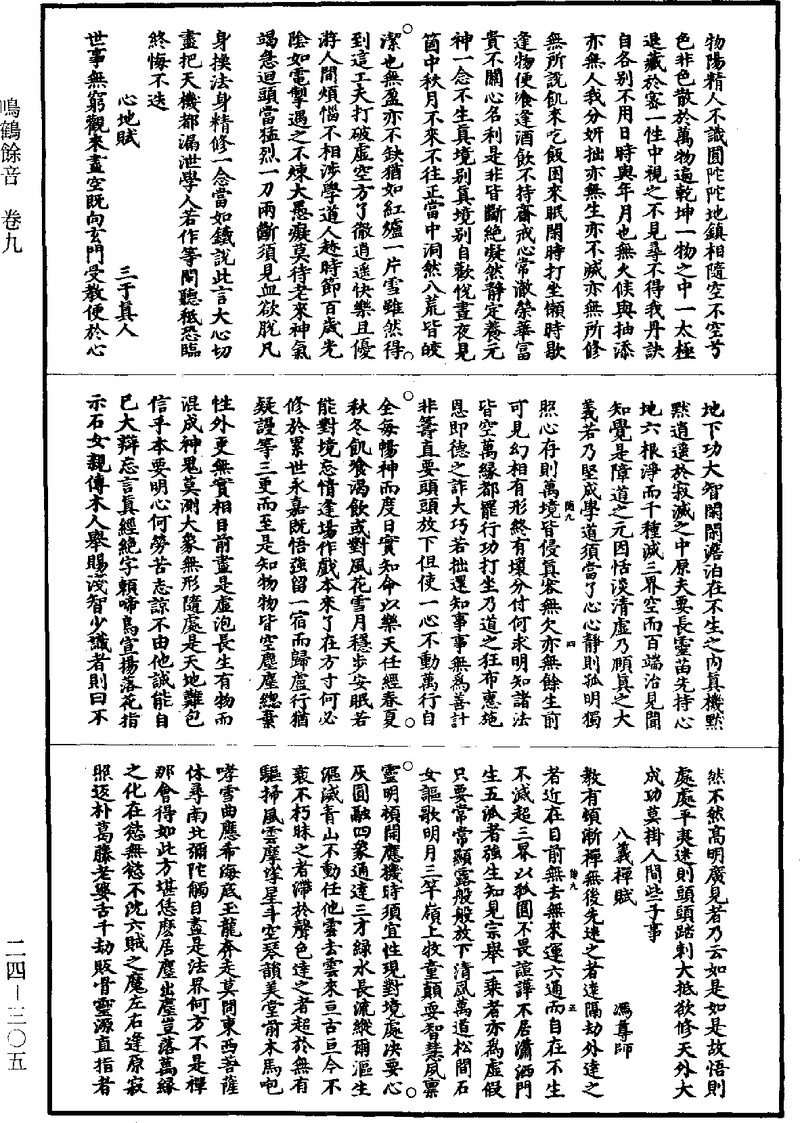 鳴鶴餘音 卷九
二四—三〇五
物陽精人不識圓陀陀地鎮相隨空不空兮
色非色散於萬物遍乾坤一物之中一太極
退藏於密一性中視之不見尋不得我丹訣
自各別不用日時與年月也無火候與抽添
亦無人我分妍拙亦無生亦不滅亦無所修
無所說飢來吃飯困來眠閑時打坐懶時歇
逢物便飡逢酒飲不持齋戒心常澈榮華富
貴不關心名利是非皆斷絕凝然靜定養元
神一念不生真境別真境別自歡悅晝夜見
箇中秋月不來不往正當中洞然八荒皆皎
潔也無盈亦不缺猶如紅爐一片雪雖然得
到這工夫打破虛空方了徹逍遙快樂且優
游人間煩惱不相涉學道人趁時節百歲光
陰如電掣遇之不煉大愚癡莫待老來神氣
竭急迴頭當猛烈一刀兩斷須見血欲脫凡
身換法身精修一念當如鐵說此言大心切
盡把天機都漏泄學人若作等閑聽秪恐臨
終悔不迭
心地賦
三于真人
世事無窮觀來盡空既向玄門受教便於心
地下功大智閑閑澹泊在不生之內真機默
默逍遙於寂滅之中原夫要長靈苗先持心
地六根淨而千種滅三界空而百端治見聞
知覺是障道之元因恬淡清虛乃頤真之大
義若乃堅成學道須當了心心靜則孤明獨
照心存則萬境皆侵真容無欠亦無餘生前
可見幻相有形終有壞分付何求明知諸法
皆空萬緣都罷行功打坐乃道之狂布惠施
恩即德之詐大巧若拙還知事事無為善計
非籌直要頭頭放下但使一心不動萬行自
全每暢神而度日實知命以樂天任經春夏
秋冬飢飡渴飲或對風花雪月穩步安眠若
能對境忘情逢場作戲本來了在方寸何必
修於累世永嘉既悟強留一宿而歸盧行猶
疑謾等三更而至是知物物皆空塵塵總棄
性外更無實相目前盡是虛泡長生有物而
混成神鬼莫測大象無形隨處是天地難包
信乎本要明心何勞苦志諒不由他誠能自
已大辯忘言真經絕字賴啼鳥宣揚落花指
示石女親傳木人舉賜淺智少識者則曰不
然不然高明廣見者乃云如是如是故悟則
處處平夷迷則頭頭踏刺大抵欲修天外大
成功莫掛人間些子事
八義禪賦
馮尊師
教有頓漸禪無後先迷之者遠隔劫外達之
者近在目前無去無來運六通而自在不生
不滅起三界以孤圓不畏諠譁不居瀟洒門
生五派者強生知見宗舉一乘者亦為虛假
只要常常顯露般般放下清風萬道松間石
女謳歌明月三竿嶺上牧童顛耍智慧風稟
靈明頓開應機時須宜性現對境處決要心
灰圓融四象通達三才綠水長流縱爾漚生
漚滅青山不動任他雲去雲來亘古亘今不
衰不朽昧之者滯於聲色達之者超於無有
驅掃風雲摩挲星斗空琴韻美堂前木馬咆
哮雪曲應希海底玉龍奔走莫問東西菩薩
休尋南北彌陀觸目盡是法界何方不是禪
那會得如此方堪恁麽居塵出塵豈落萬緣
之化在慾無慾不沈六賊之魔左右逢原寂
照返朴葛藤老婆舌千劫販骨靈源直指者